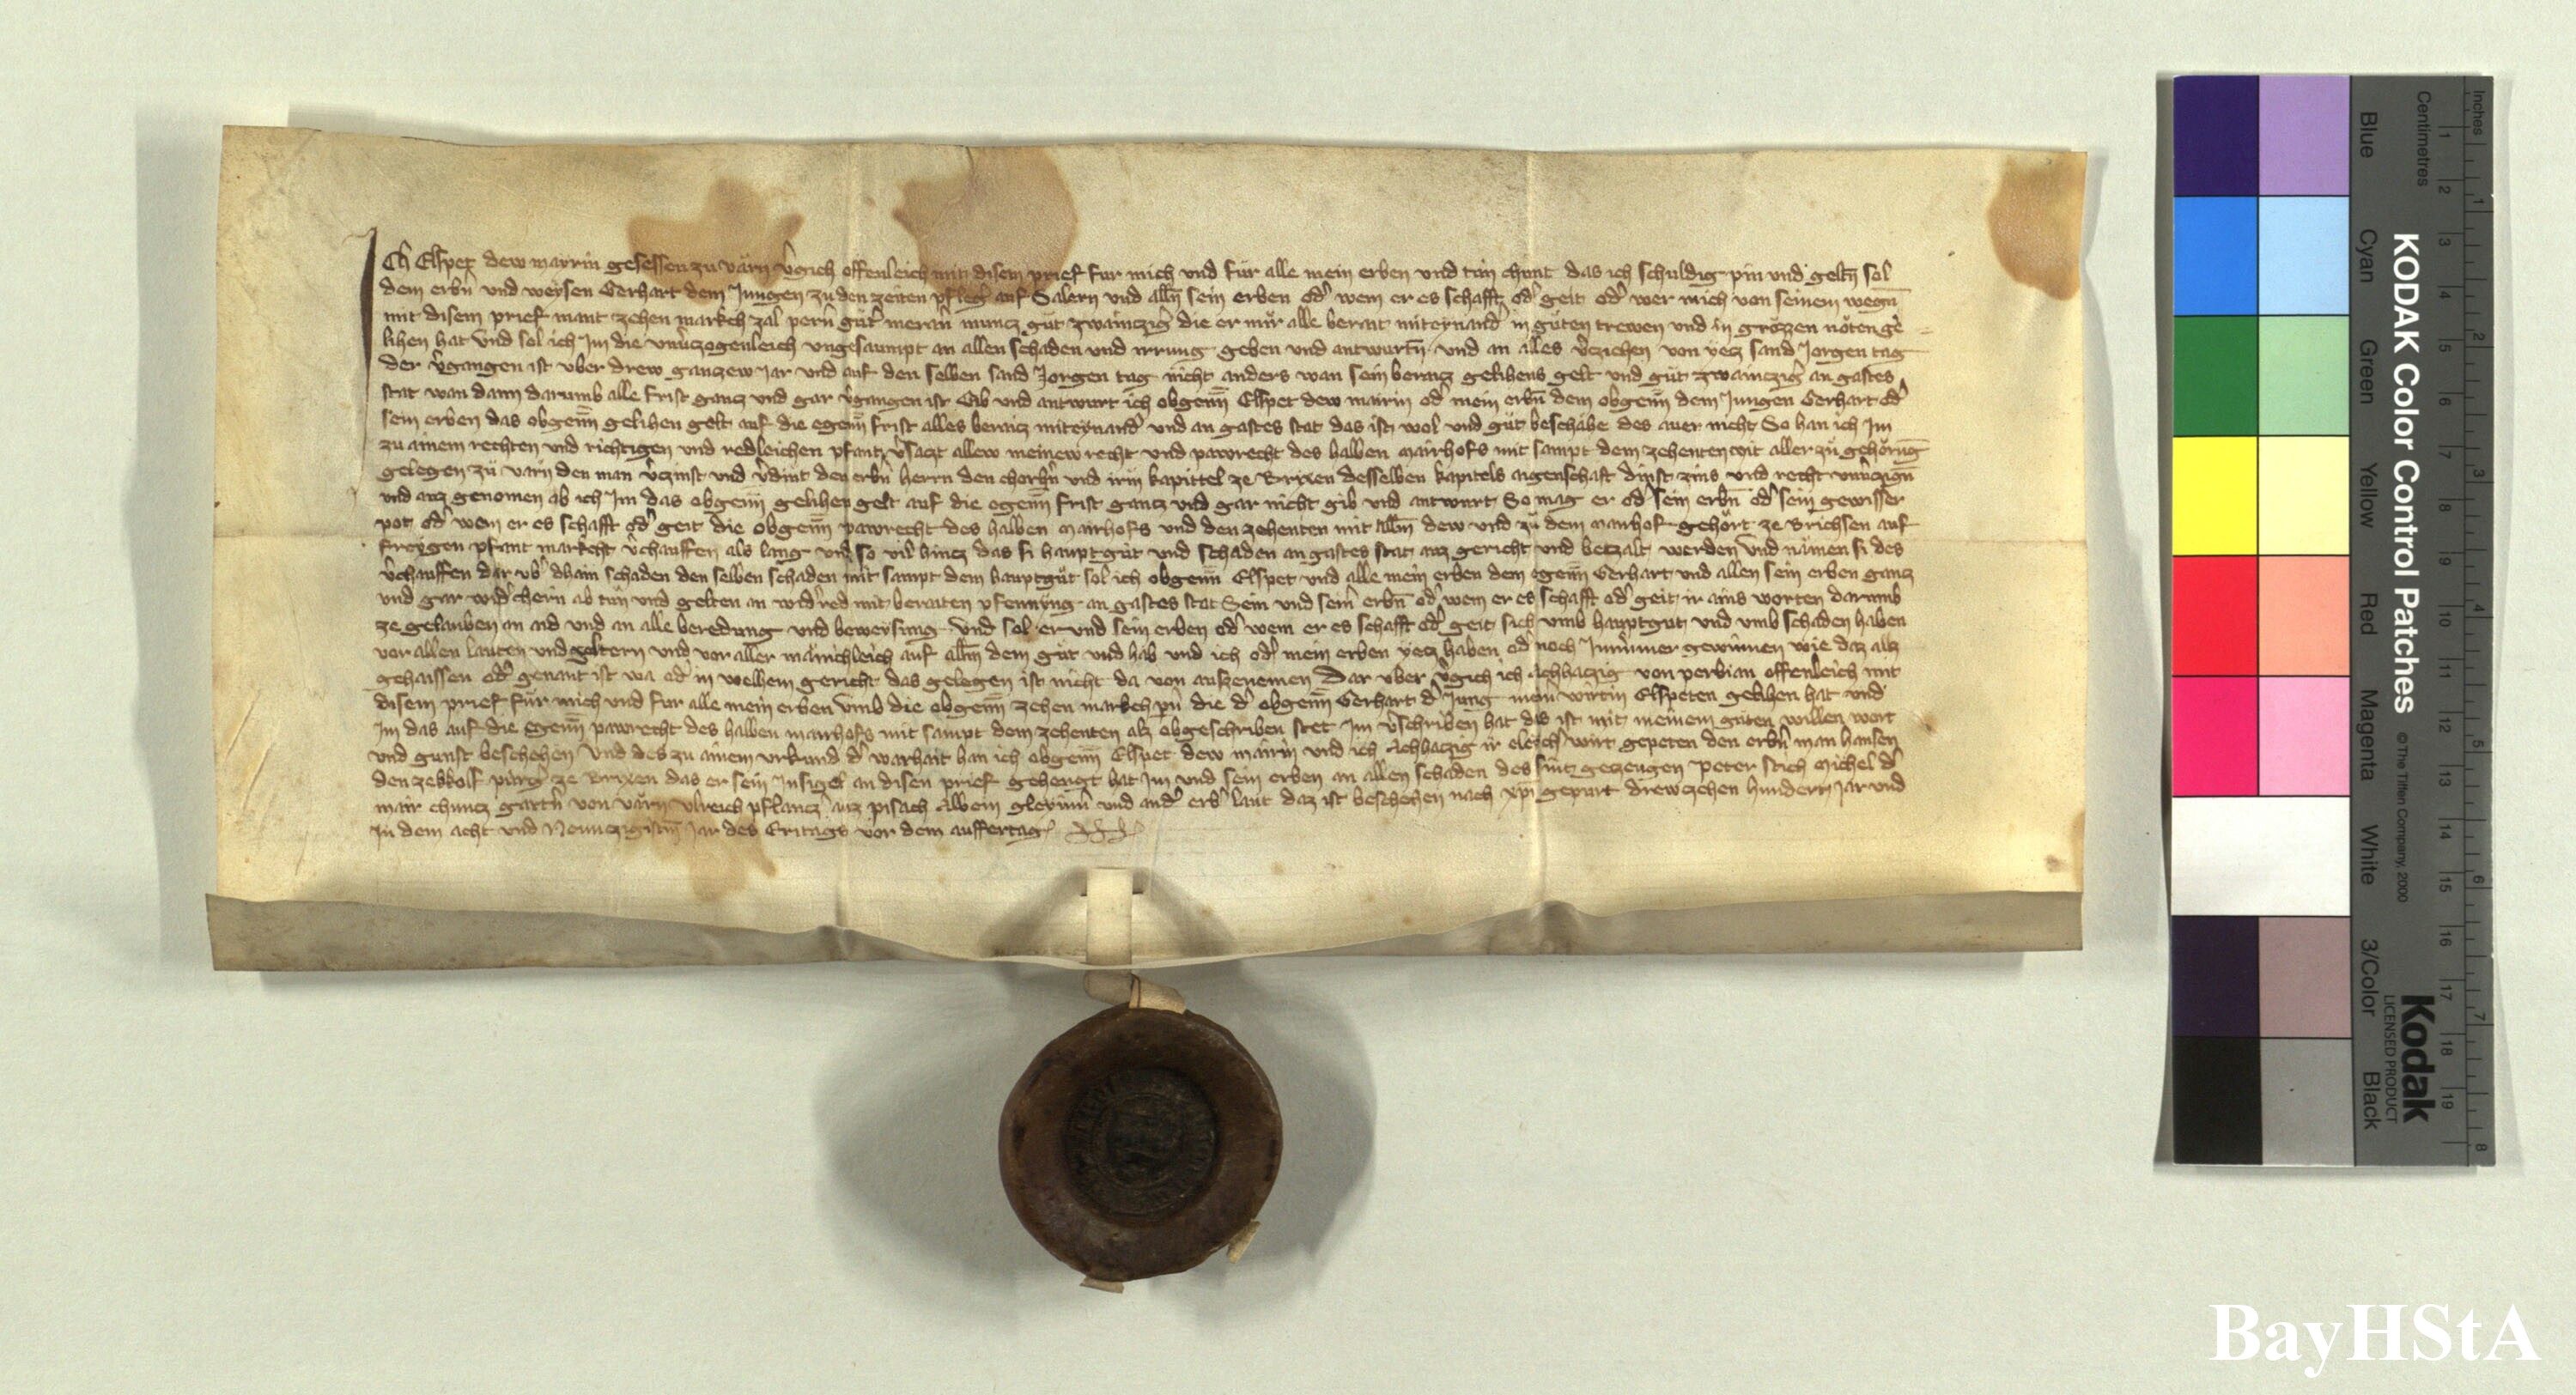 Ich Elspet dew mayrin gesessen zu varn v̂gich offenleich mit disem prief fur mich vnd fur alle mein erben vnd tun chunt das ich schuldig pin vnd geltn̄ sol
dem erbn̄ vnd weysen Gerhart dem Jungen zu den zeiten pfleg̑ auf Salern vnd alln̄ sein erben od̑ wem er es schafft od̑ geit od̑ wer mich von seinem wegn̄
mit disem prief mant zehen markch zal pern̄ gut̑ meran̄ muncz gut zwainczig̑ die er mir alle berait miteynand̑ in guten trewen vnd in grozzen noten ge
lihen hat vnd sol ich Im die vnuerczogenleich vngesaumpt an allen schaden vnd irrung geben vnd antwurtn̄ vnd an alles v̂cziehen von yecz sand Jorgen tag
der v̂gangen ist vber drew ganczew Jar vnd auf den selben sand Jorgen tag nicht anders wan sein beraicz gelihens gelt vnd gut zwainczig̑ an gastes
stat wan dann darumb alle frist gancz vnd gar v̂gangen ist Gib vnd antwurt ich obgenn̄ Elspet dew mairin od̑ mein erbn̄ dem obgenn̄ dem Jungen Gerhart od̑
sein erben das obgenn̄ gelihen gelt auf die egenn̄ frist alles beraicz miteynand̑ vnd an gastes stat das ist wol vnd gut beschahe des auer nicht So han ich Im
zu ainem rechten vnd richtigen vnd redleichen pfant v̂saczt allew meinew recht vnd pawrecht des halben mairhofs mit sampt dem zehenten mit aller zu gehorūg
gelegen zu varn den man v̂czinst vnd v̂dint den erbn̄ herrn den chorhn̄ vnd irm kapittel ze Brixen desselben kapitels aigenschaft dinst zins vnd recht vnuerczign̄
vnd auz genomen ab ich Im das obgenn̄ gelihen gelt auf die egenn̄ frist gancz vnd gar nicht gib vnd antwurt So mag er od̑ sein erbn̄ od̑ sein gewisser
pot od̑ wem er es schafft od̑ geit die obgenn̄ pawrecht des halben mairhofs vnd den zehenten mit alln̄ dew vnd zu dem mairhof gehort ze Brichsen auf
freygen pfant markcht v̂chauffen als lang vnd so vil hincz das si hauptgut vnd schaden an gastes stat auz gericht vnd beczalt werden vnd namen si des
v̂chauffen dar vb̑ dhain schaden den selben schaden mit sampt dem hauptgut sol ich obgenn̄ Elspet vnd alle mein erben dem egenn̄ Gerhart vnd allen sein erben gancz
vnd gar wid̑chern ab tun vnd gelten an wid̑red mit beraiten pfennyng an gastes stat Sein vnd sein̑ erbn̄ od̑ wem er es schafft od̑ geit ir ains worten darumb
ze gelauben an aid vnd an alle beredung vnd beweysung vnd sol er vnd sein erben od̑ wem er es schafft od̑ geit sich vmb hauptgut vnd vmb schaden haben
vor allen lauten vnd geltern vnd vor aller mainchleich auf alln̄ dem gut vnd hab vnd ich od̑ mein erben yecz haben od̑ noch Inimmer gewinnen wie daz alz
gehaissen od̑ genant ist wa od̑ in welhem gericht das gelegen ist nicht da von auszenemen Dar vber v̂gich ich Achhaczig von perbian offenleich mit
disem prief fur mich vnd fur alle mein erben vmb die obgenn̄ zehen markch pn̄ die d̑ obgenn̄ Gerhart d̑ Jung mein wirtin Elspeten gelihen hat vnd
Im das auf die egenn̄ pawrecht des halben mairhofs mit sampt dem zehenten alz obgeschriben stet Im v̂schriben hat das ist mit meinem guten willen wort
vnd gunst beschehen Vnd des zu ainem vrkund d̑ warhait han ich obgenn̄ Elspet dew mairin vnd ich Achhaczig ir eleich wirt gepeten den erbn̄ man hansen
den zekkolf purg̑ ze Brixen das er sein Insigel an disen prief gehengt hat Im vnd sein erben an allen schaden des sint geczeugen Peter stich Michel d̑
mair chuncz gartn̑ von varn vlreich pflancz̑ auz pisach Albein gleyrin̄ vnd and̑ erb̑ laut daz ist beschehen nach xp̄i gepurt drewczehen hundert Jar vnd
In dem acht vnd Newnczigistn̄ Jar des Eritags vor dem auffertag
KODAK Color Control Patches
© The Tiffen Company, 2000
Kodak
LICENSED PRODUCT
Inches 1 2 3 4 5 6 7 8
Centimetres 1 2 3 4 5 6 7 8 9 10 11 12 13 14 15 16 17 18 19
Blue Cyan Green Yellow Red Magenta White 3/Color Black
BayHStA